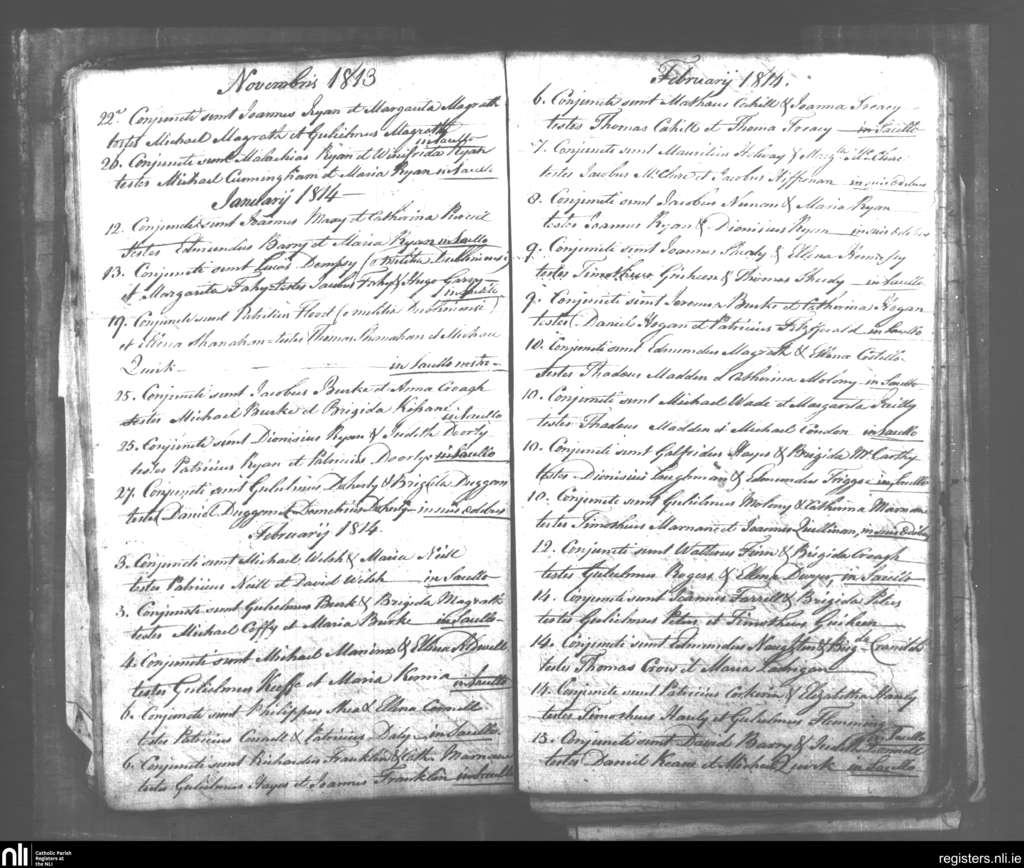 Novembris 1813
22a Conjuncti sunt Joannes Ryan et Margarita Magrath
testes Michael Magrath et Gulielmus Magrath
in Sacello
26. Conjuncti sunt Malachias Ryan et Winifrida Ryan
testes Michael Cunningham et Maria Ryan in Sacello
Januarij 1814
12. Conjuncti sunt Joannes Macy et Catharina
testes Edmundus Barry et Maria Ryan in Sacello
13. Conjuncti sunt Lucas Dempsy (e Militia
et Margarita Fahy testes Jacobus Fahy & Hugo
in Sacello
19. Conjuncti sunt Flood (e militia
et Elena Shanahan testes Thomas Shanahan et Michael
Quirk in Sacello
25. Conjuncti sunt Jacobus Burke et Anna Croagh
testes Michael Burke et Brigida in Sacello
25. Conjuncti sunt Dionisius Ryan & Judith Doorly
testes Patricius Ryan et Patricius Doorly in Sacello
27. Conjuncti sunt Gulielmus Doherty & Brigida Duggan
testes Daniel Duggan et Doherty in suis Ædibus
Februarij 1814
3. Conjuncti sunt Michael Welsh & Maria Neill
testes Patricius Neill et David Welsh in Sacello
3. Conjuncti sunt Gulielmus Burk & Brigida Magrath
testes Michael Coffy et Maria Burke in Sacello
4. Conjuncti sunt Michael & Elena
testes Gulielmus Keeffe et Maria in Sacello
6. Conjuncti sunt Philippus Shea & Ellena Connell
testes Patricius & Patricius Daly in Sacello
6. Conjuncti sunt Richardus Franklin & Cath. Marnane
testes Gulielmus Hayes et Joannes Franklin in Sacello
Februarij 1814.
6. Conjuncti sunt Matheus Cahill & Joanna Treacy
testes Thomas Cahill et Thoma Treacy in Sacello
7. Conjuncti sunt Mauritius & McClure
testes Jacobus McClure et Jacobus Heffernan in suis Ædibus
8. Conjuncti sunt Jacobus Nunan & Maria Ryan
testes Joannes Ryan & Dionisius Ryan in suis Ædibus
9. Conjuncti sunt Joannes & Ellena
testes Timotheus Guiheen & Thomas in Sacello
9. Conjuncti sunt Jeremia Burke et Catharina Hogan
testes Daniel Hogan et Patricius Fitzgerald in Sacello
10. Conjuncti sunt Edmundus Magrath & Ellena Costello
testes Thadeus Madden et Catharina Molony in Sacello
10. Conjuncti sunt Michael Wade et Margarita Reilly
testes Thadeus Madden et Michael Condon in Sacello
10. Conjuncti sunt Galfridus Hayes & Brigida McCarthy
testes Dionisius Loughman & Edmundus Griggs in Sacello
10. Conjuncti sunt Gulielmus Molony & Catharina Marnane
testes Timotheus Marnane et Joannes Quillinan, in suis Ædibus
12. Conjuncti sunt Walterus Finn & Brigida Croagh
testes Gulielmus Rogers & Ellena Dwyer, in Sacello
14. Conjuncti sunt Joannes Farrell & Brigida Peters
testes Gulielmus Peters et Timotheus Guiheen
14. Conjuncti sunt Edmundus Naughten & Brigde
testes Thomas Crow et Maria Ladrigan
14. Conjuncti sunt Patricius Corkeran & Elizabetha Hardy
testes Timotheus Hardy et Gulielmus Flemming
in Sacello
15. Conjuncti sunt Davids Barry & Judith
testes Daniel Keane et Michael Quirk in Sacello
nli
Catholic Parish
Registers at
the NLI
registers.nli.ie